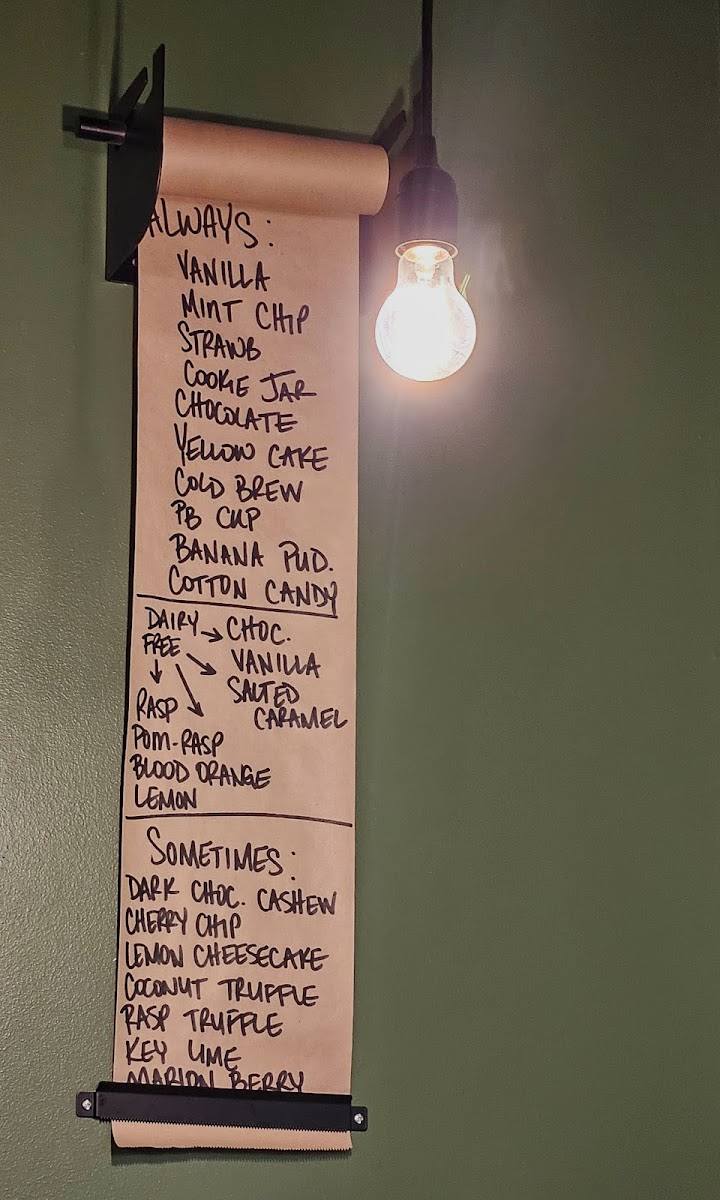 ALWAYS:
VANILLA
MINT CHIP
STRAWB
COOKIE JAR
CHOCOLATE
YELLOW CAKE
COLD BREW
PB CUP
BANANA PUD.
COTTON CANDY
DAIRY FREE → CHOC.
VANILLA
SALTED
CARAMEL
RASP
POM-RASP
BLOOD ORANGE
LEMON
SOMETIMES:
DARK CHOC. CASHEW
CHERRY CHIP
LEMON CHEESECAKE
COCONUT TRUFFLE
RASP TRUFFLE
KEY LIME
MARION BERRY